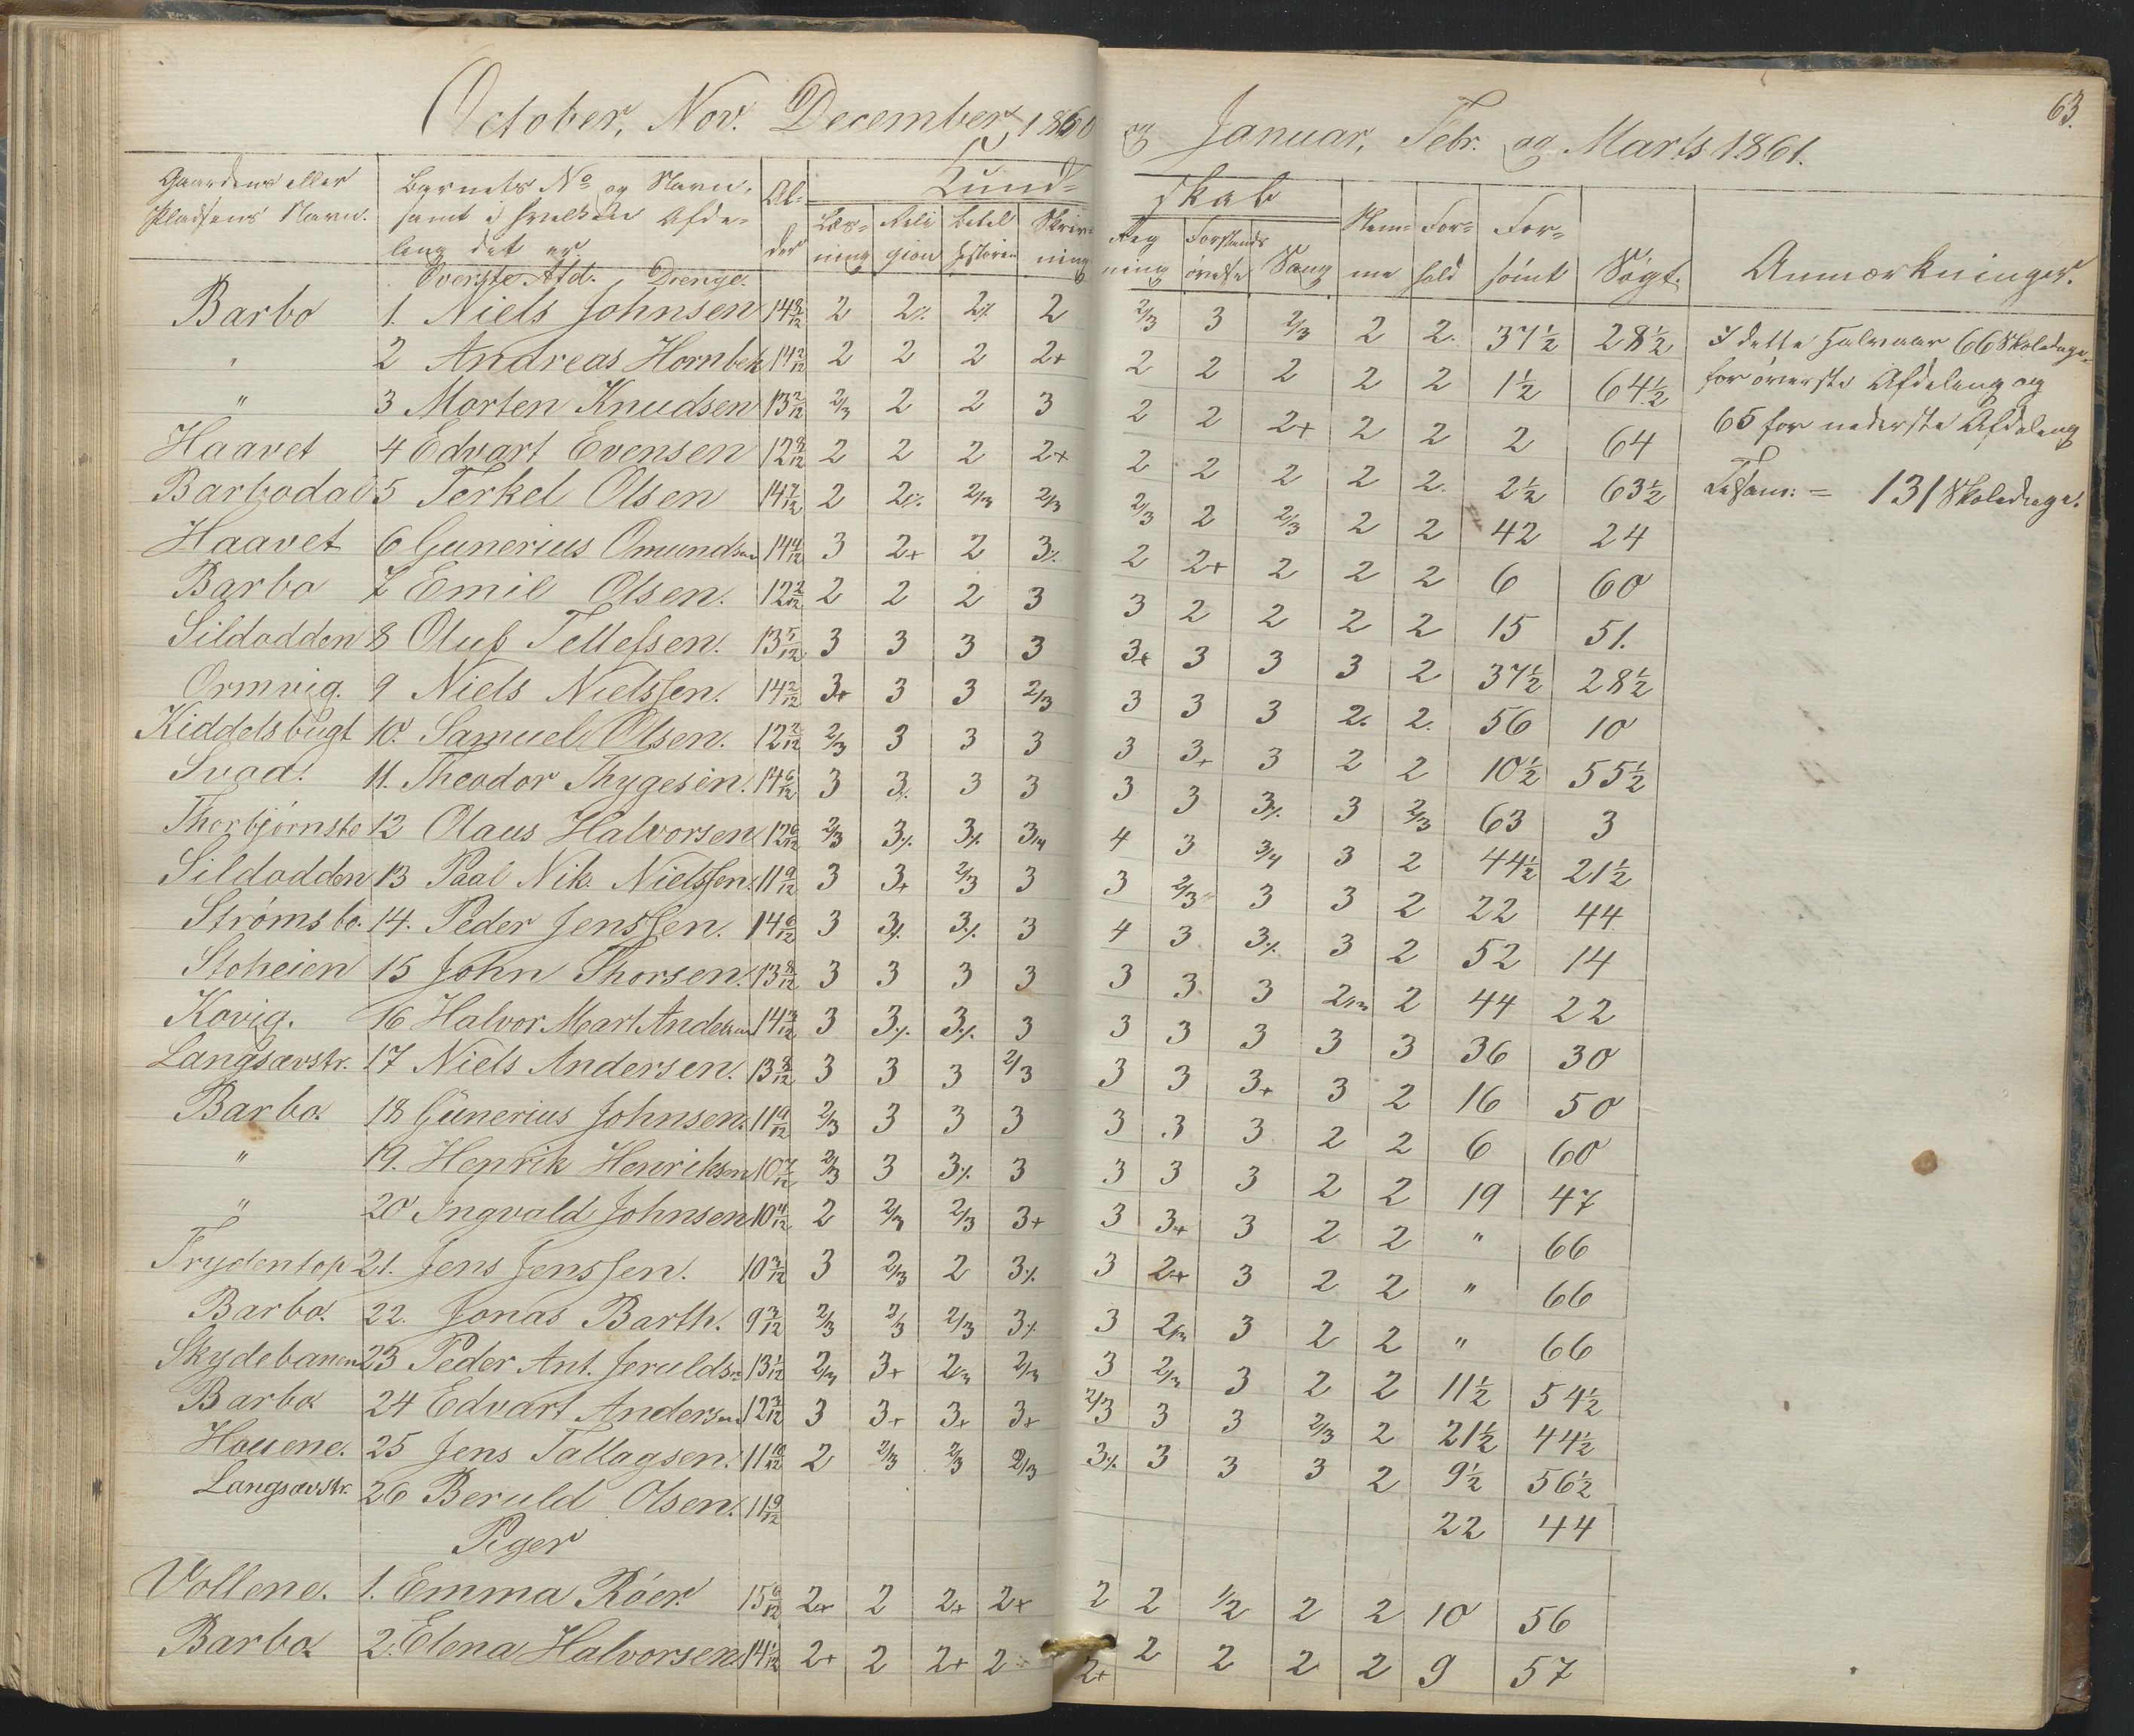 October, Nov. December 1860 og Januar, Febr. og Marts 1861.
63.
Gaardens eller Pladsens Navn. | Barnets No og Navn, samt i hvilken Afdeling det er | Alder | Kundskab | Læsning | Religion | Bibelhistorien | Skrivning | Regning | Forstandsøvelse | Sang | Nemme | Forhold | Forsømt | Søgt. | Anmærkninger.
Øverste Afd. Drenge.
Barbo 1. Niels Johnsen 14 8/12 2 2% 2% 2 2/3 3 2/3 2 2. 37½ 28½
" 2 Andreas Hornbek 14 2/12 2 2 2 2+ 2 2 2 2 2 1½ 64½
" 3 Morten Knudsen 13 2/12 2/3 2 2 3 2 2 2+ 2 2 2 64
Haavet 4 Edvart Evensen 12 8/12 2 2 2 2+ 2 2 2 2 2. 2½ 63½
Barbodal 5 Terkel Olsen 14 7/12 2 2% 2/3 2/3 2/3 2 2/3 2 2 42 24
Haavet 6 Gunerius Omundsen 14 4/12 3 2+ 2 3% 2 2+ 2 2 2 6 60
Barbo 7 Emil Olsen. 12 2/12 2 2 2 3 3 2 2 2 2 15 51.
Sildodden 8 Oluf Tellefsen. 13 5/12 3 3 3 3 3+ 3 3 3 2 37½ 28½
Ormvig. 9 Niels Nielssen. 14 2/12 3+ 3 3 2/3 3 3 3 2. 2. 56 10
Kiddelsbugt 10. Samuel Olsen. 12 2/12 2/3 3 3 3 3 3+ 3 2 2 10½ 55½
Svaa. 11. Theodor Thygesen. 14 6/12 3 3% 3 3 3 3 3% 3 2/3 63 3
Thorbjørnsbo 12 Olaus Halvorsen 12 6/12 2/3 3% 3% 3/4 4 3 3/4 3 2 44½ 21½
Sildodden 13 Paal Nik. Nielssen. 11 9/12 3 3+ 2/3 3 3 2/3 3 3 2 22 44
Strømsbo. 14. Peder Jenssen. 14 6/12 3 3% 3% 3 4 3 3% 3 2 52 14
Stoheien 15 John Thorsen. 13 8/12 3 3 3 3 3 3 3 2/3 2 44 22
Kovig. 16 Halvor Mart Andersen 14 3/12 3 3% 3% 3 3 3 3 3 3 36 30
Langsævstr. 17 Niels Andersen. 13 8/12 3 3 3 2/3 3 3 3+ 3 2 16 50
Barbo. 18 Gunerius Johnsen. 11 9/12 2/3 3 3 3 3 3 3 2 2 6 60
" 19. Henrik Henriksen 10 7/12 2/3 3 3% 3 3 3 3 2 2 19 47
" 20 Ingvald Johnsen 10 11/12 2 2/3 2/3 3+ 3 3+ 3 2 2 " 66
Frydentop 21. Jens Jenssen. 10 3/12 3 2/3 2 3% 3 2+ 3 2 2 " 66
Barbo. 22. Jonas Barth. 9 3/12 2/3 2/3 2/3 3% 3 2/3 3 2 2 " 66
Skydebanen 23 Peder Ant. Jeruldsn 13 1/12 2/3 3+ 2/3 2/3 3 2/3 3 2 2 11½ 54½
Barbo 24 Edvart Andersen 12 3/12 3 3+ 3+ 3+ 2/3 3 3 2/3 2 21½ 44½
Houene. 25 Jens Tallagsen. 11 10/12 2 2/3 2/3 2/3 3% 3 3 3 2 9½ 56½
Langsævstr. 26 Beruld Olsen. 11 9/12 22 44
Piger
Vollene. 1. Emma Röer. 15 6/12 2+ 2 2+ 2+ 2 2 1/2 2 2 10 56
Barbo. 2. Elena Halvorsen 14 1/12 2+ 2 2+ 2 2+ 2 2 2 2 9 57
I dette Halvaar 66 Skoledage
for øverste Afdeling og
65 for nederste Afdeling
Tilsam: = 131 Skoledage.